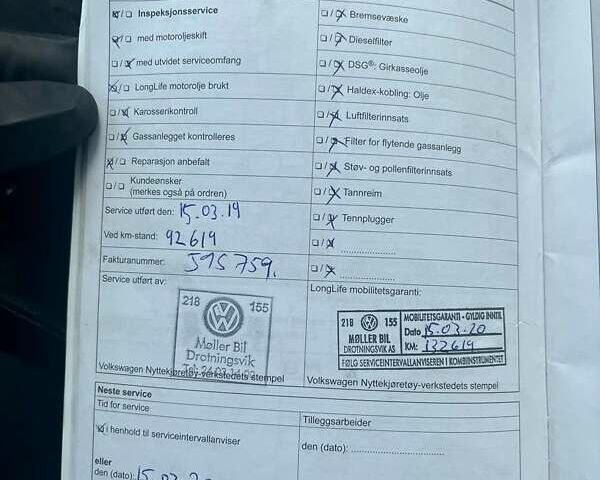 Inspeksjonsservice
med motoroljeskift
med utvidet serviceomfang
LongLife motorolje brukt
Karosserikontroll
Gassanlegget kontrolleres
Reparasjon anbefalt
Kundeønsker
(merkes også på ordren)
Service utført den: 15.03.19
Ved km-stand: 92619
Fakturanummer: 595759.
Service utført av:
218 155
Møller Bil
Drotningsvik
Volkswagen Nyttekjøretøy-verkstedets stempel
Bremsevæske
Dieselfilter
DSG®: Girkasseolje
Haldex-kobling: Olje
Luftfilterinnsats
Filter for flytende gassanlegg
Støv- og pollenfilterinnsats
Tannreim
Tennplugger
LongLife mobilitetsgaranti:
218 155
MØLLER BIL
DROTNINGSVIK AS
MOBILITETSGARANTI - GYLDIG INNTIL
Dato 15.03.20
KM: 132619
FØLG SERVICEINTERVALLANVISEREN I KOMBIINSTRUMENTET
Volkswagen Nyttekjøretøy-verkstedets stempel
Neste service
Tid for service
i henhold til serviceintervallanviser
eller
den (dato): 15.03.
Tilleggsarbeider
den (dato):